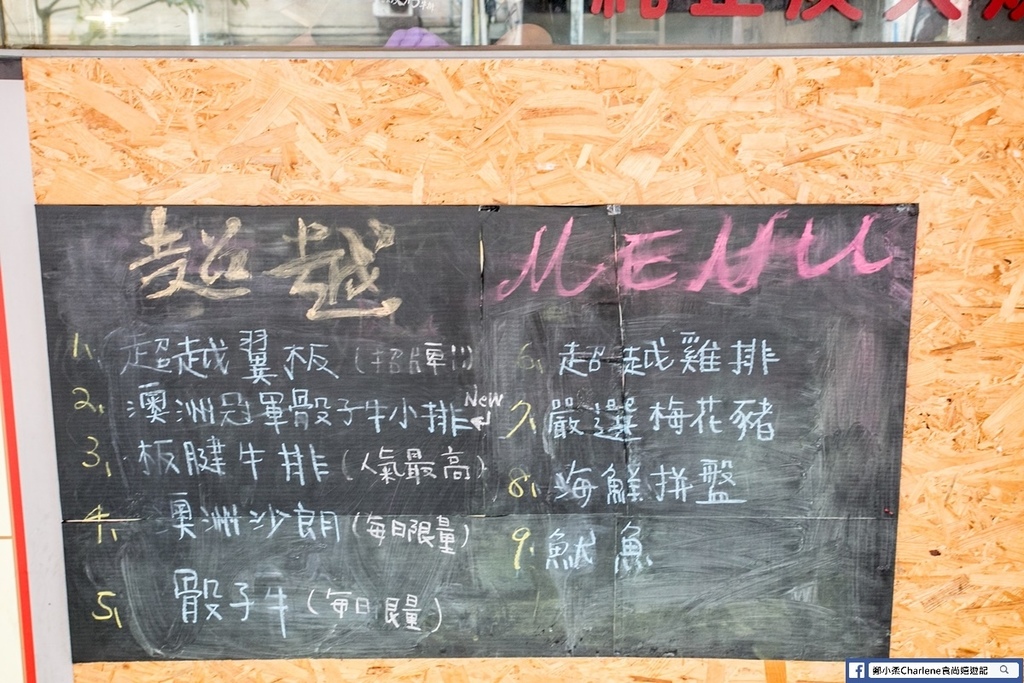 超越 MENU
1. 超越翼板(招片軍!!)
2. 澳洲冠軍骰子牛小排 New
3. 板腱牛排(人氣最高)
4. 澳洲沙朗(每日限量)
5. 骰子牛(每日限量)
6. 超越雞排
7. 嚴選梅花豬
8. 海鮮拼盤
9. 魷魚
鄭小柔Charlene食尚嬉遊記